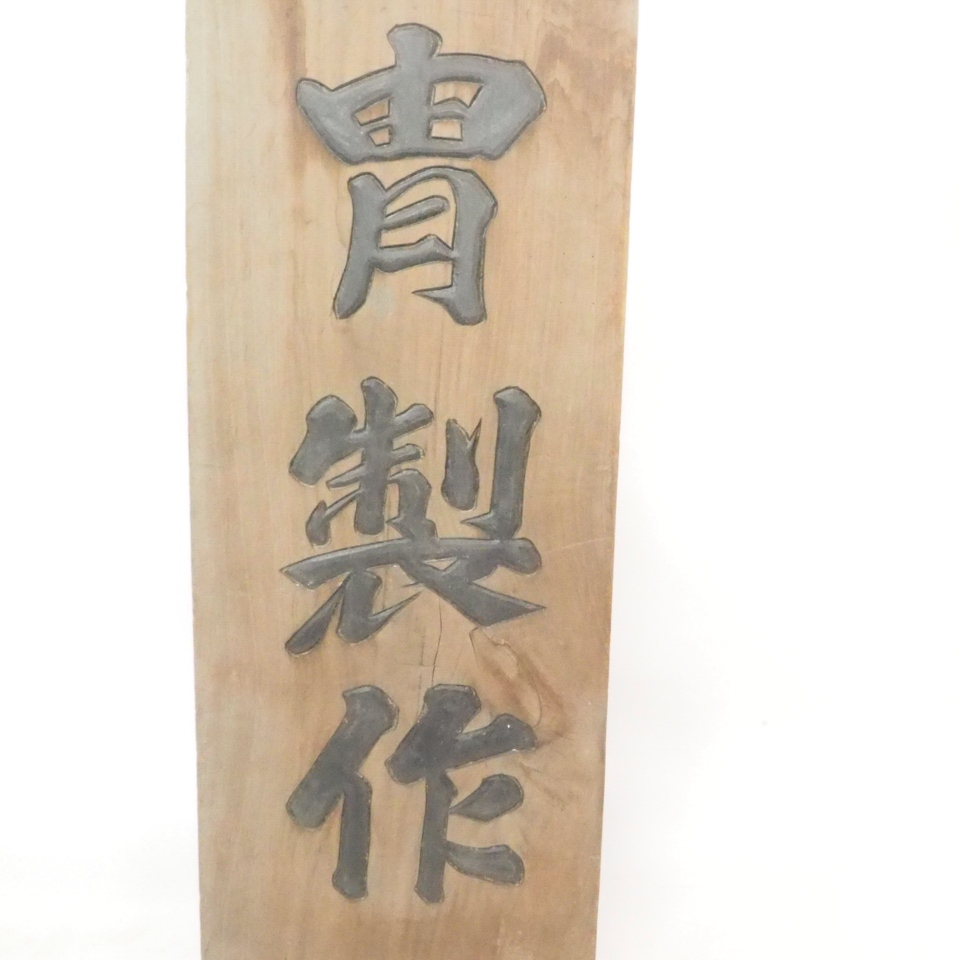 冑製作